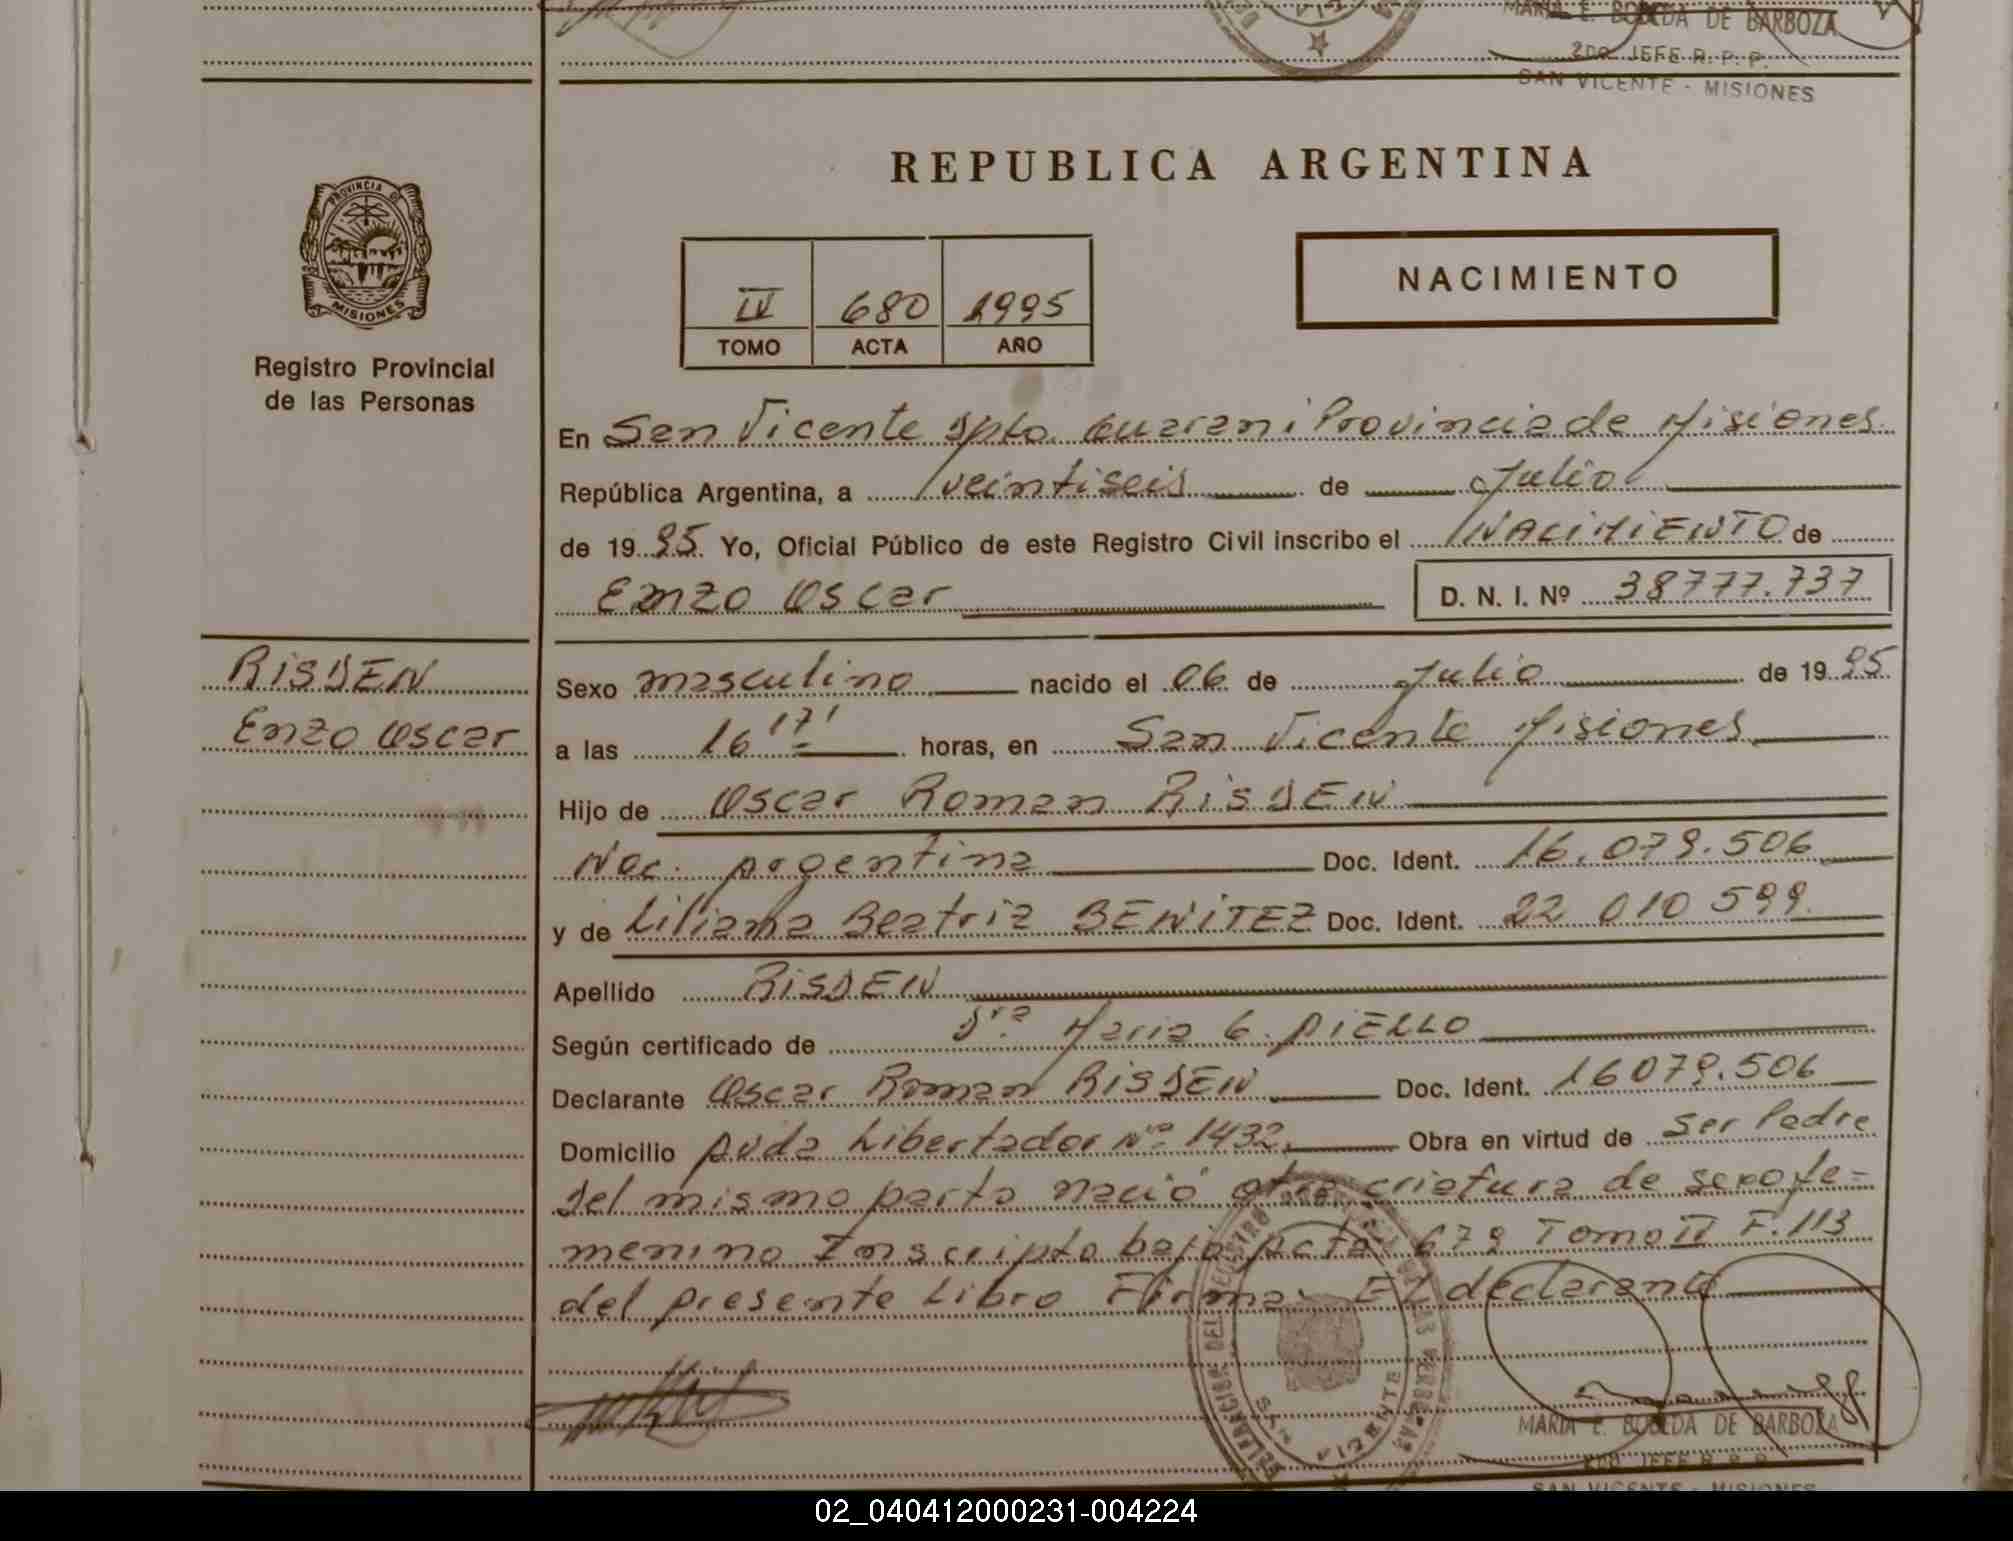 MARIA E. BOBEDA DE BARBOZA
2DO JEFE R. P. P.
SAN VICENTE - MISIONES
REPUBLICA ARGENTINA
PROVINCIA DE
MISIONES
Registro Provincial
de las Personas
IV 680 1995
TOMO ACTA AÑO
NACIMIENTO
En San Vicente Dpto. Guarani Provincia de Misiones
República Argentina, a veintiseis de Julio
de 1995 Yo, Oficial Público de este Registro Civil inscribo el NACIMIENTO de
Enzo Oscar D. N. I. Nº 38777.737
RISDEN
Enzo Oscar
Sexo masculino nacido el 06 de Julio de 1995
a las 16 17' horas, en San Vicente Misiones
Hijo de Oscar Roman RISDEN
Nac. Argentina Doc. Ident. 16.079.506
y de Liliana Beatriz BENITEZ Doc. Ident. 22 010 599
Apellido RISDEN
Según certificado de Dra. Maria G. AIELLO
Declarante Oscar Roman RISDEN Doc. Ident. 16079.506
Domicilio Avda Libertador Nro. 1432 Obra en virtud de Ser Padre
Del mismo parto nació otra criatura de sexo fe=
menino Inscripta bajo Acta 679 Tomo IV F. 113
del presente Libro Firma: El declarante
MARIA E. BOBEDA DE BARBOZA
2DO JEFE R. P. P.
SAN VICENTE - MISIONES
02_040412000231-004224